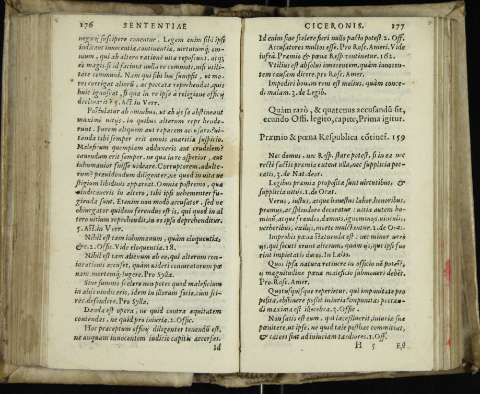 176 SENTENTIAE
negocij suscipere conentur. Legem enim sibi ipsi
indicent innocentiae, continentiae, virtutumque omnium,
qui ab altero rationem vitae reposcunt, atque
eo magis si id faciunt nulla re commoti, nisi utilitate
communi. Nam qui sibi hoc sumpsit, ut mores
corrigat aliorum, ac peccata reprehendat, quis
huic ignoscat, si qua in re ipse à religione officij
declinarit? 5. Act. in Verr.
Postulatur ab omnibus, ut ab ijs se abstineant
maximè vitijs, in quibus alterum reprehenderunt.
Furem aliquem aut rapacem accusaris? vitanda
tibi semper erit omnis avaritiae suspicio.
Maleficum quempiam adduxeris aut crudelem?
cavendum erit semper, ne qua in re asperior, aut
inhumanior fuisse videare. Corruptorem, adulterum?
providendum diligenter, ne quod in vita vestigium
libidinis appareat. Omnia postremò, quae
vindicaveris in altero, tibi ipsi vehementer fugienda
sunt. Etenim non modò accusator, sed ne
obiurgator quidem ferendus est is, qui quod in altero
vitium reprehendit, in eo ipse deprehenditur.
5. Act. in Verr.
Nihil est tam inhumanum, quàm eloquentiã,
&c. 2. Offic. Vide eloquentia. 18.
Nihil est tam alienum ab eo, qui alterum
accuset, quàm
Pro Sylla.
Sine summo scelere
Pro Sylla.
Danda est opera, ne quid contra aequitatem
contendas, ne quid pro iniuria. 2. Offic.
Hoc praeceptum officij diligenter tenendũ est,
ne quem unquam innocentem iudicio capitis arcessas.
Id
CICERONIS. 177
Id enim sine scelere fieri nullo pacto potest. 2. Off.
Accusatores multos esse. Pro Rosc. Ameri. Vide
infrà. Praemio & poena Resp. continetur. 162.
Utilius est absolvi innocentem, quàm innocentem
causam dicere. pro Rosc. Amer.
Impediri bonam rem est melius, quàm concedi
malam. 3. de Legib.
Quàm rarò, & quatenus accusandũ sit,
ecundo Offi. legito, capite, Prima igitur.
Praemio & poena Respublica cõtinet. 159
Nec domus, nec Resp. stare potest, si in ea nec
recte factis praemia extent ulla, nec supplicia peccatis.
3. de Nat. deor.
Legibus praemia proposita sunt virtutibus, &
supplicia vitijs. 1. de Orat.
Verùs, iustus, atque honestus labor, honoribus,
praemijs, ac splendore decoratur: vitia autem hominũ,
atque fraudes, damnis, ignominijs, vinculis,
verberibus, exilijs, morte multantur. 1. de Orat.
Improbis poena statuenda est: nec minor verò
ijs, qui secuti erunt alterum, quàm ijs, qui ipsi fuerint
impietatis duces. In Laelio.
Quos ipsa natura retinere in officio nõ potest,
ij magnitudine poenae maleficio submoveri debẽt.
Pro Rosc. Amer.
Quotusquisque reperietur, qui impunitate proposita,
abstinere possit iniurijs? impunitas peccandi
maxima est illecebra. 3. Offic.
Non satis est eum, qui lacessierit, iniuriae suae
poenitere, ut ipse, ne quid tale posthac committat,
& caeteri sint ad iniuriam tardiores. 1. Off.
H 5 Est